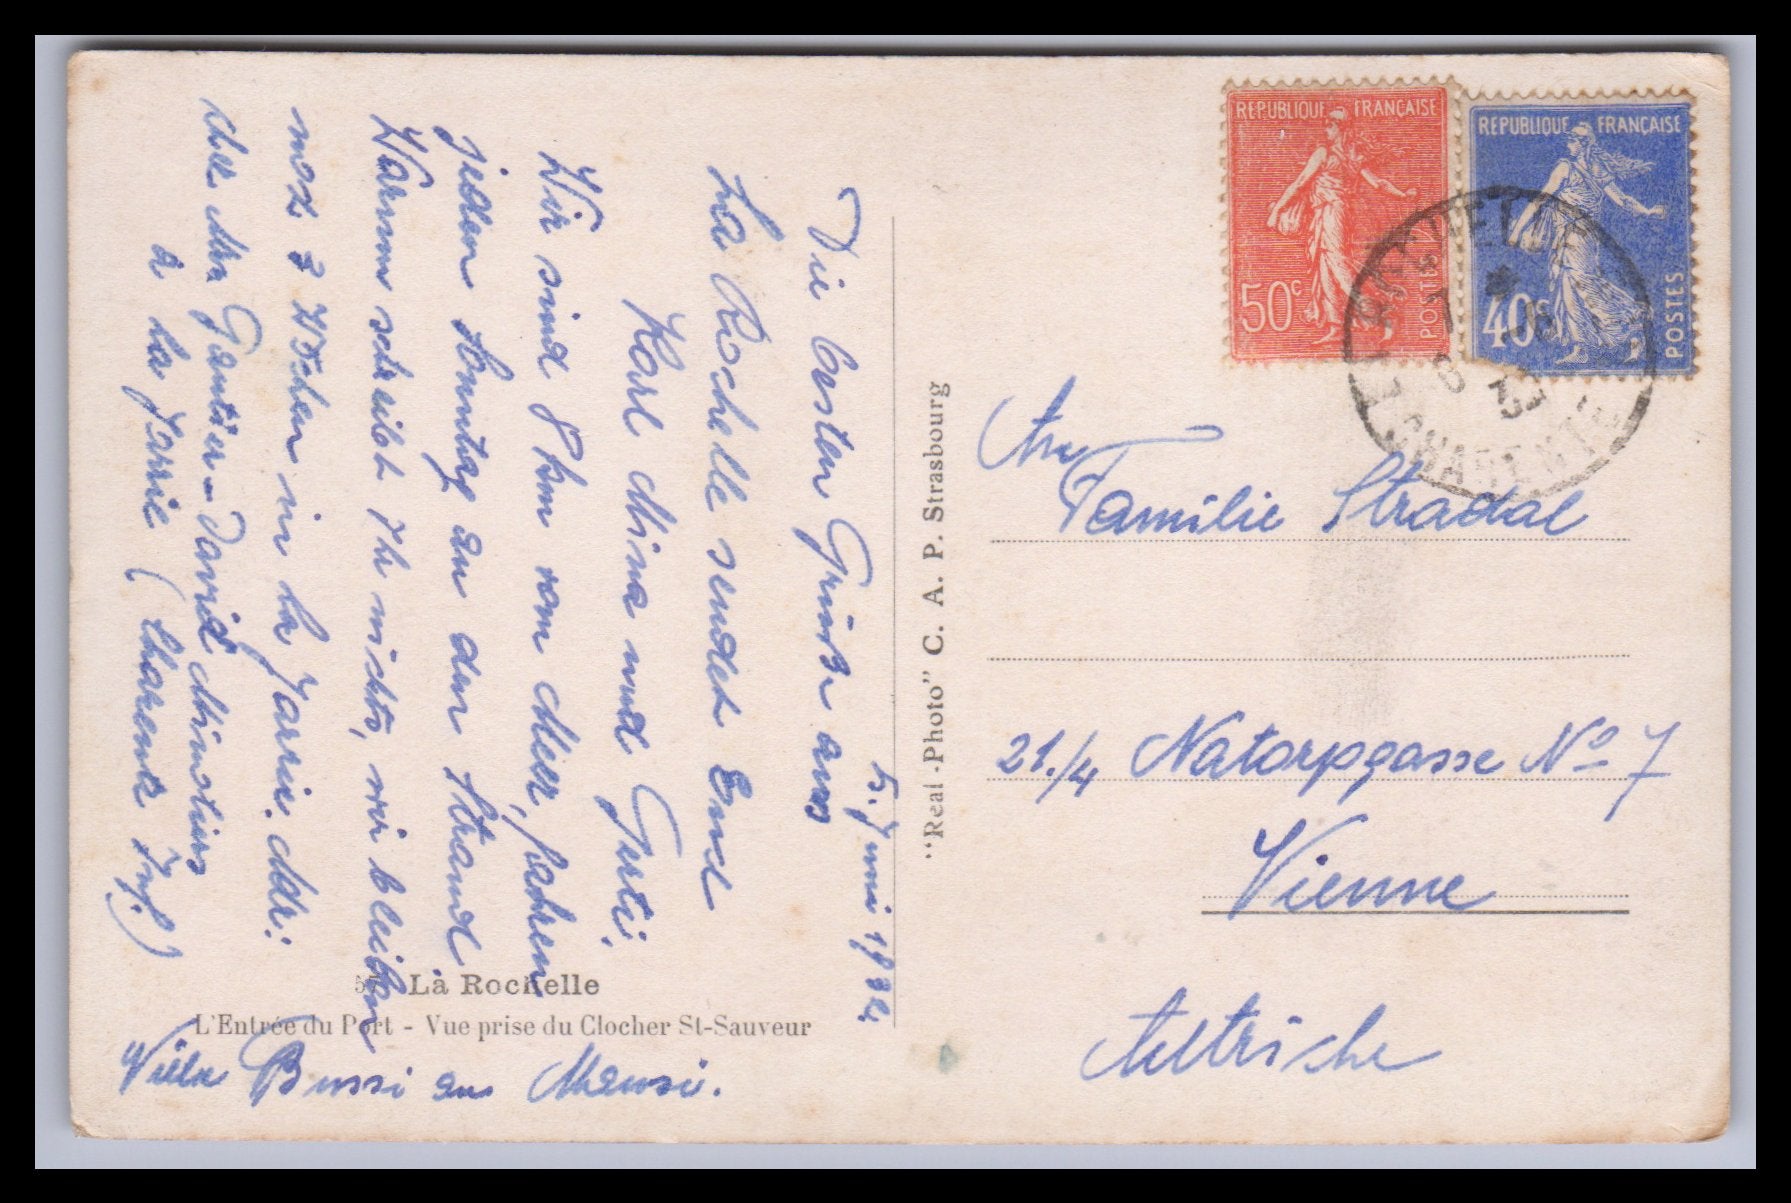 5. Juni 1932
Die besten Grüsse aus
La Rochelle sendet Emel
Karl Mina und Gerti.
Wir sind 8 km vom Meer, fahren
jeden Sonntag an den Strand
Warum schreibt Ihr nichts, wir bleiben
noch 3 Wochen in La Jarrie. Adr:
che Mr Gautier-David Minotiers
a La Jarrie (Charente Inf.)
Viele Bussi an Mausi.
La Rochelle
L'Entrée du Port - Vue prise du Clocher St-Sauveur
"Real-Photo" C. A. P. Strasbourg
REPUBLIQUE FRANÇAISE
50c
POSTES
REPUBLIQUE FRANÇAISE
40c
POSTES
LA ROCHELLE
CHARENTE
An
Familie Stradal
21./4 Natorpgasse No 7
Vienne
Auttriche